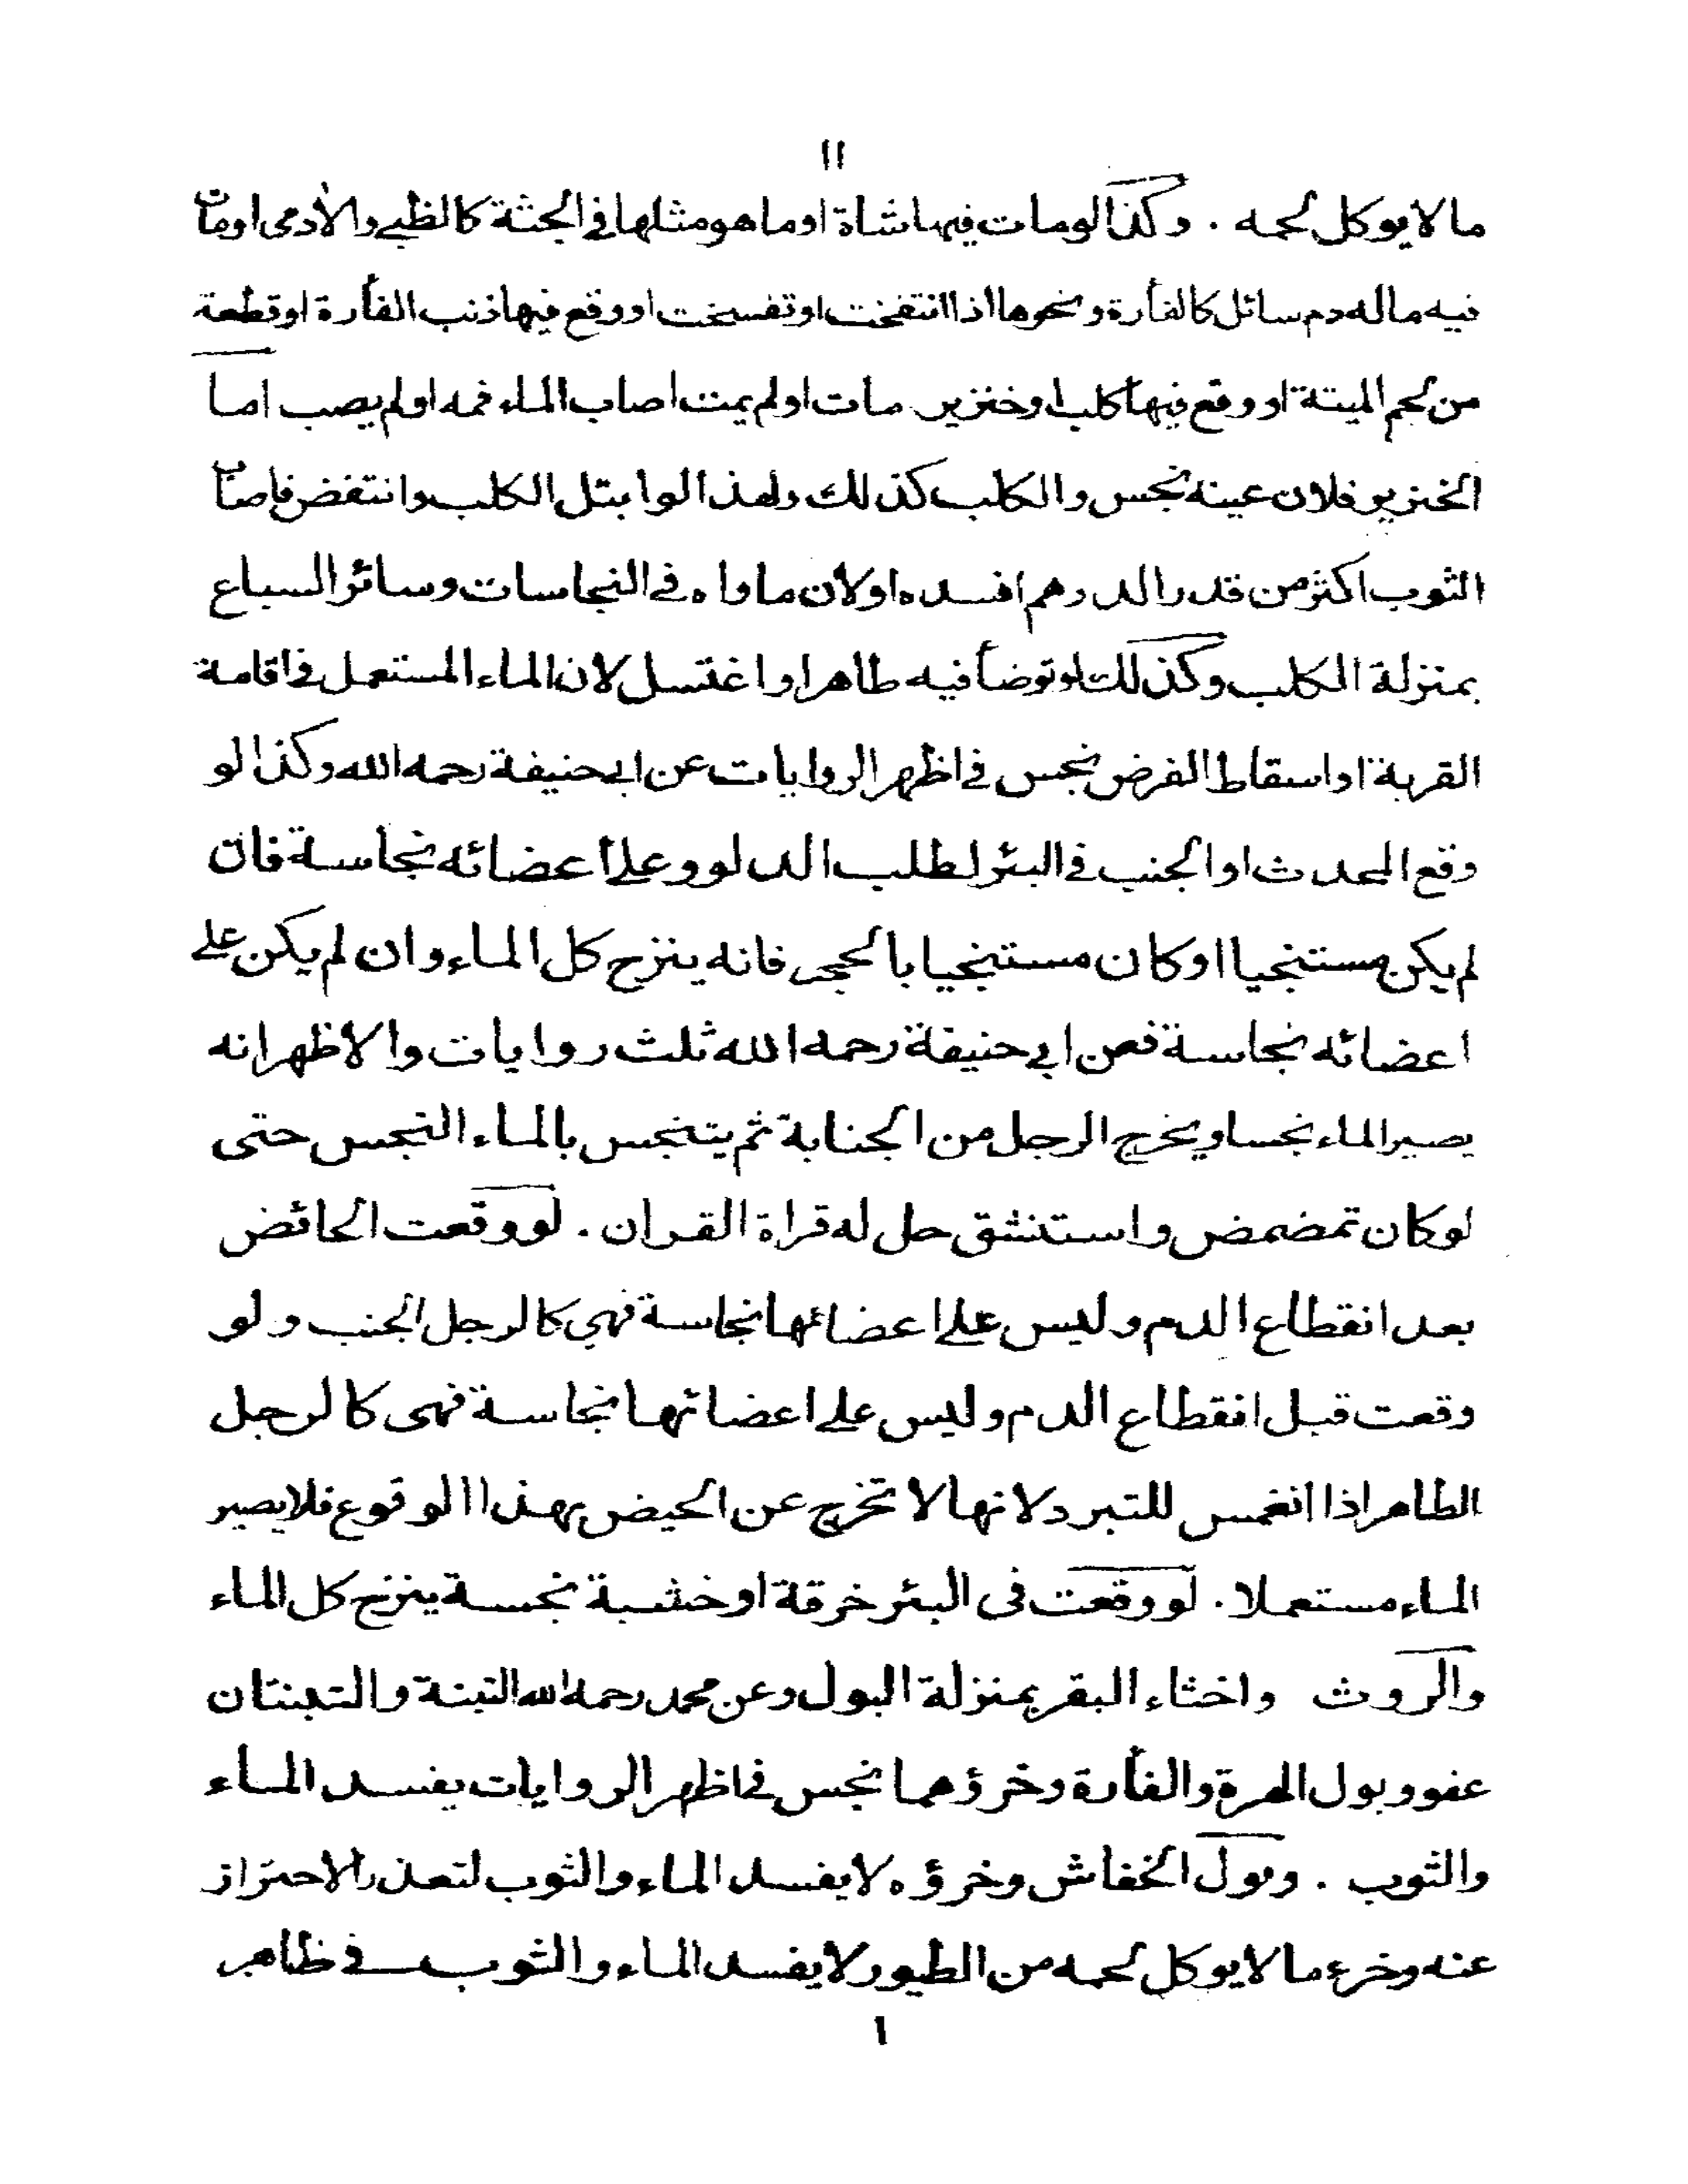 ١١
ما لا يوكل لحمه . وكذا لو مات فيها شاة او ما هو مثلها في الجثة كالظبي والأدمى او مات
فيه ماله دم سائل كالفأرة ونحوها اذا انتفخت او تفسخت او وقع فيها ذنب الفأرة او قطعة
من لحم الميتة او وقع فيها كلب او خنزير مات او لم يمت اصاب الماء فمه او لم يصب اما
الخنزير فلان عينه نجس والكلب كذلك ولهذا لو ابتل الكلب وانتفض فاصاب
الثوب اكثر من قدر الدرهم افسده او لان ماواه في النجاسات وسائر السباع
بمنزلة الكلب وكذلك لو توضأ فيه طاهر او اغتسل لان الماء المستعمل في اقامة
القربة او اسقاط الفرض نجس في اظهر الروايات عن ابي حنيفة رحمه الله وكذا لو
وقع المحدث او الجنب في البئر لطلب الدلو وعلى اعضائه نجاسة فان
لم يكن مستنجيا او كان مستنجيا بالحجر فانه ينزح كل الماء وان لم يكن على
اعضائه نجاسة فعن ابي حنيفة رحمه الله ثلث روايات والاظهر انه
يصير الماء نجسا ويخرج الرجل من الجنابة ثم يتنجس بالماء النجس حتى
لو كان تمضمض واستنشق حل له قراة القران . لو وقعت الحائض
بعد انقطاع الدم وليس على اعضائها نجاسة فهي كالرجل الجنب ولو
وقعت قبل انقطاع الدم وليس على اعضائها نجاسة فهى كالرجل
الطاهر اذا انغمس للتبرد لانها لا تخرج عن الحيض بهذا الوقوع فلا يصير
الماء مستعملا . لو وقعت فى البئر خرقة او خشبة نجسة ينزح كل الماء
والروث واخثاء البقر بمنزلة البول وعن محمد رحمه الله التبنة والتبنتان
عفو وبول الهرة والفأرة وخرؤهما نجس في اظهر الروايات يفسد الماء
والثوب . وبول الخفاش وخرؤه لا يفسد الماء والثوب لتعذر الاحتراز
عنه وخرء ما لا يوكل لحمه من الطيور لا يفسد الماء والثوب في ظاهر
١